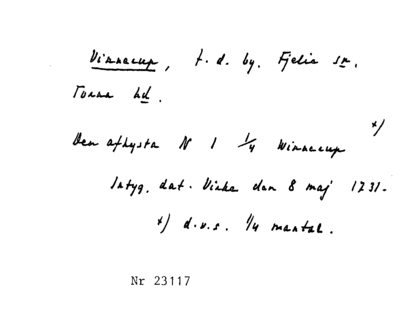 Vinnarup, f.d. by. Fjelie sn.
Torna hd.
Den afhysta N 1 1/4 Winnerup x)
Intyg. dat. Vinke den 8 maj 1731.
x) d.v.s. 1/4 mantal.
Nr 23117